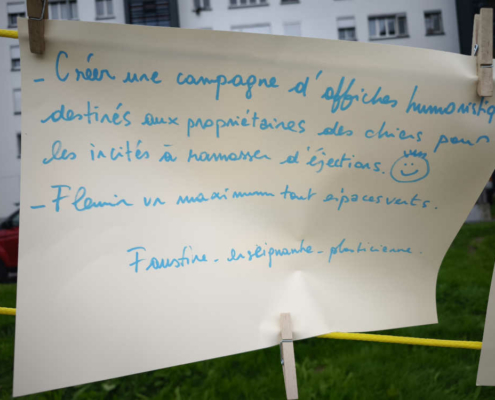 - Créer une campagne d'affiches humoristiq
destinés aux propriétaires des chiens pour
les incités à ramasser d'éjections.
- Fleurir un maximum tout espaces verts.
Faustine - enseignante - plasticienne.